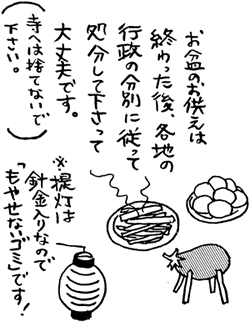 お盆のお供えは
終わった後、各地の
行政の分別に従って
処分して下さって
大丈夫です。
（寺へは捨てないで
下さい。）
※提灯は
針金入りなので
「もやせないゴミ」です！